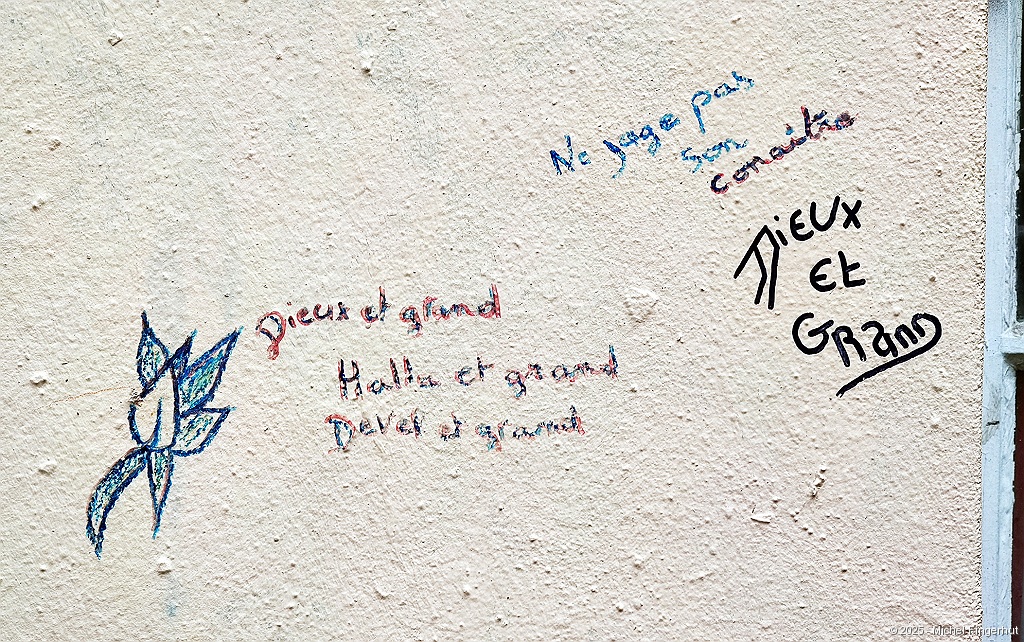 Ne jage pas
son
conaitre
DiEUX
Et
GRAnD
Dieux et grand
Halla et grand
Devet et grand
© 2025 - Michel Fingerhut